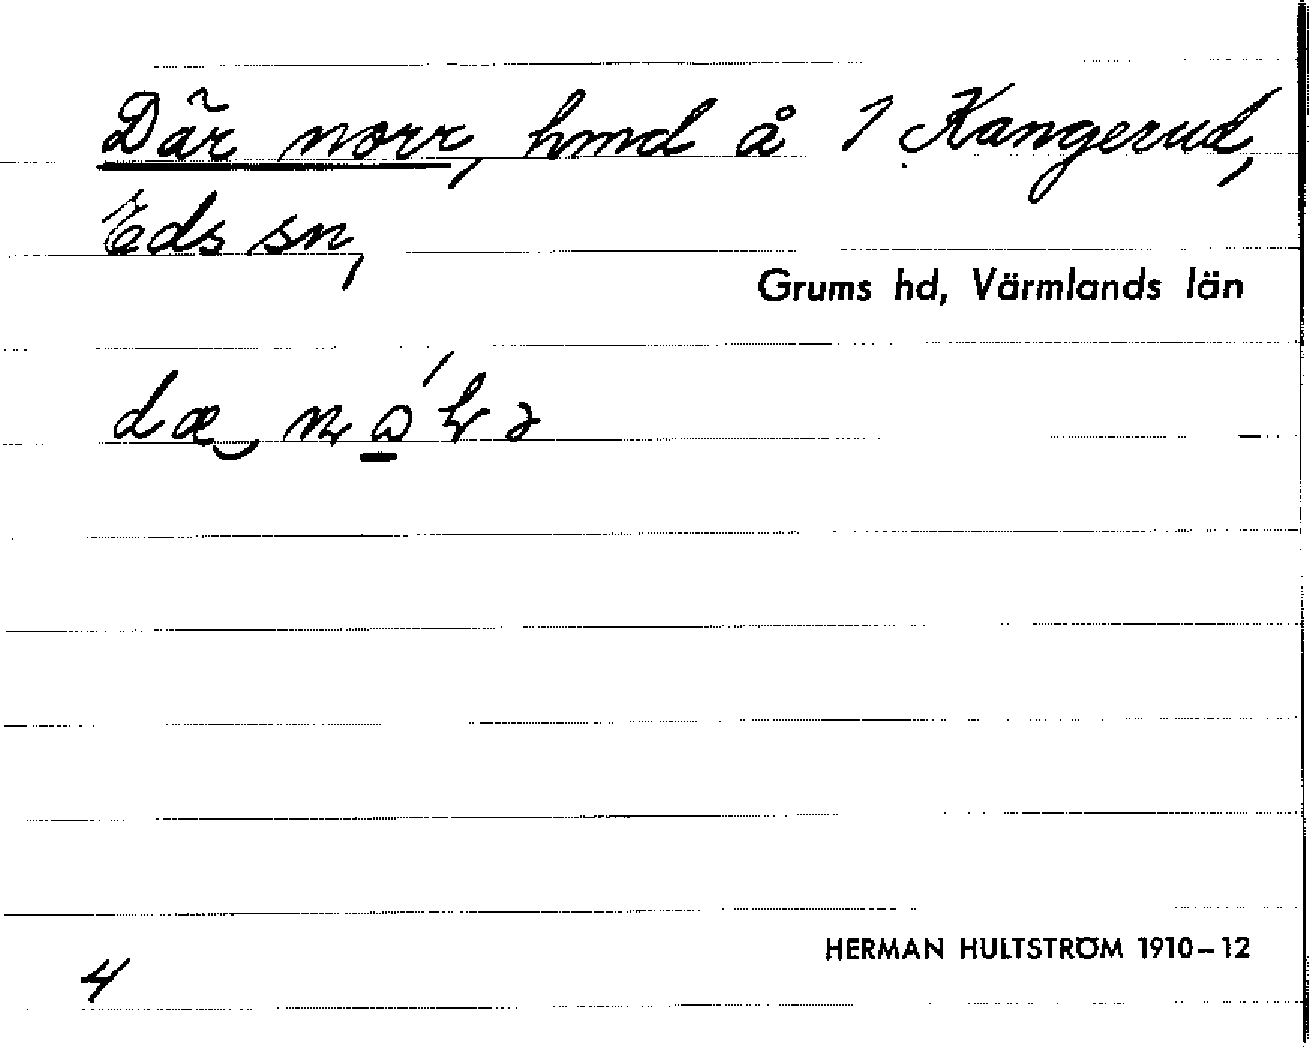 Där norr, hmd å 1 Kangerud,
Eds sn,
Grums hd, Värmlands län
HERMAN HULTSTRÖM 1910–12
4